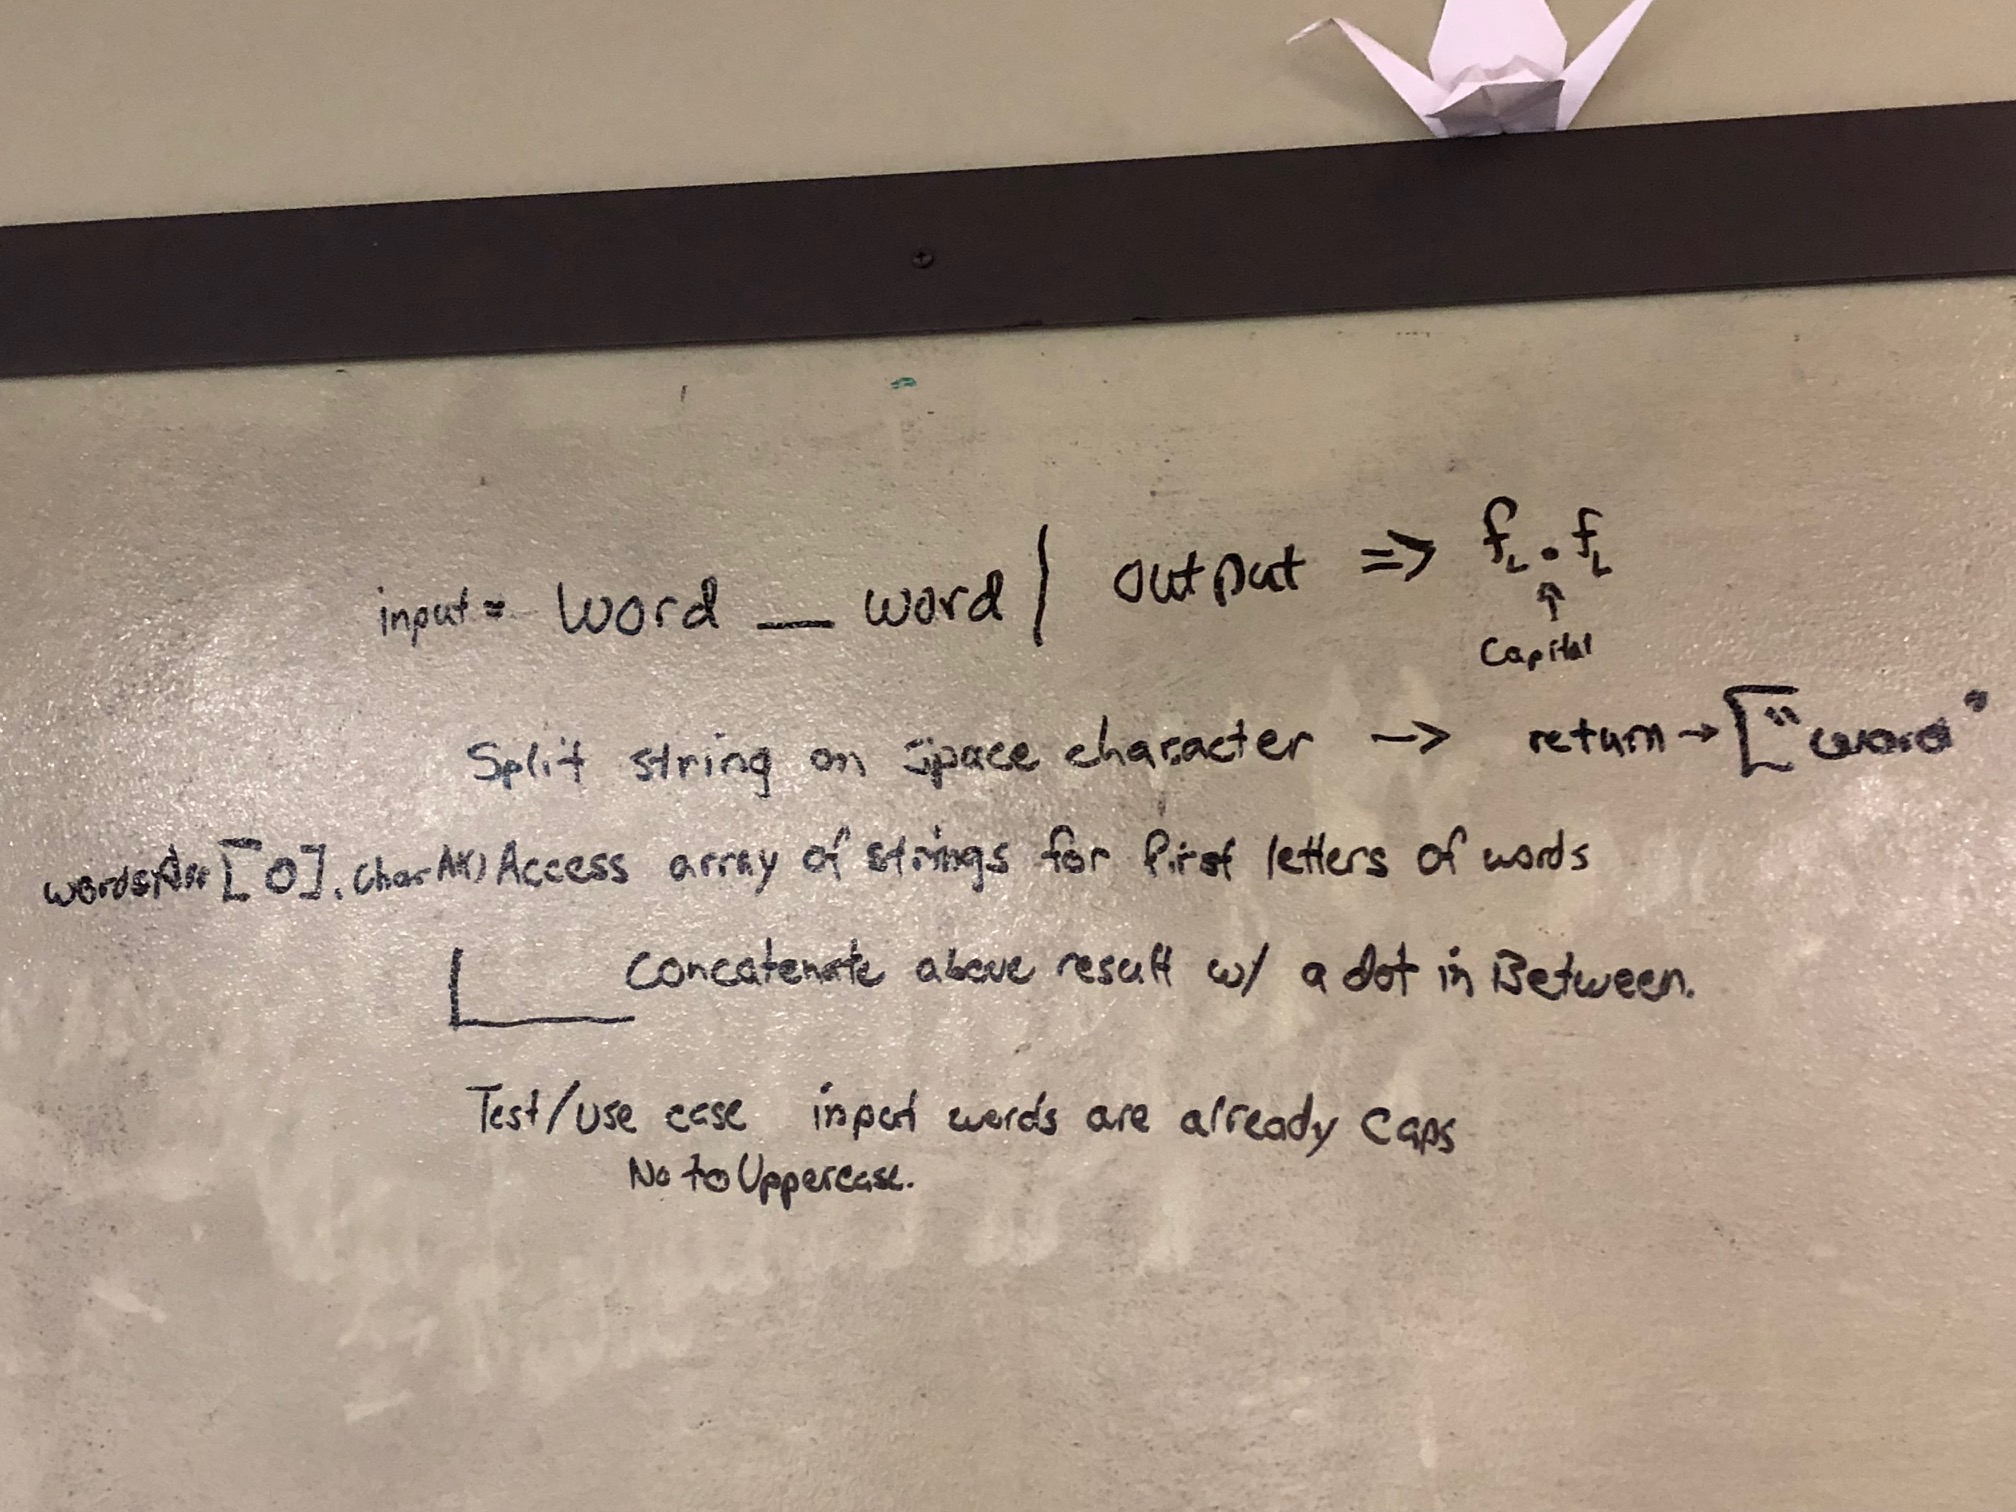 input = word __ word | output => fL . fL
↑
Capital
Split string on space character -> return → ["word"
wordsArr[0].charAt() Access array of strings for first letters of words
Concatenate above result w/ a dot in Between.
Test/use case input words are already caps
No toUppercase.